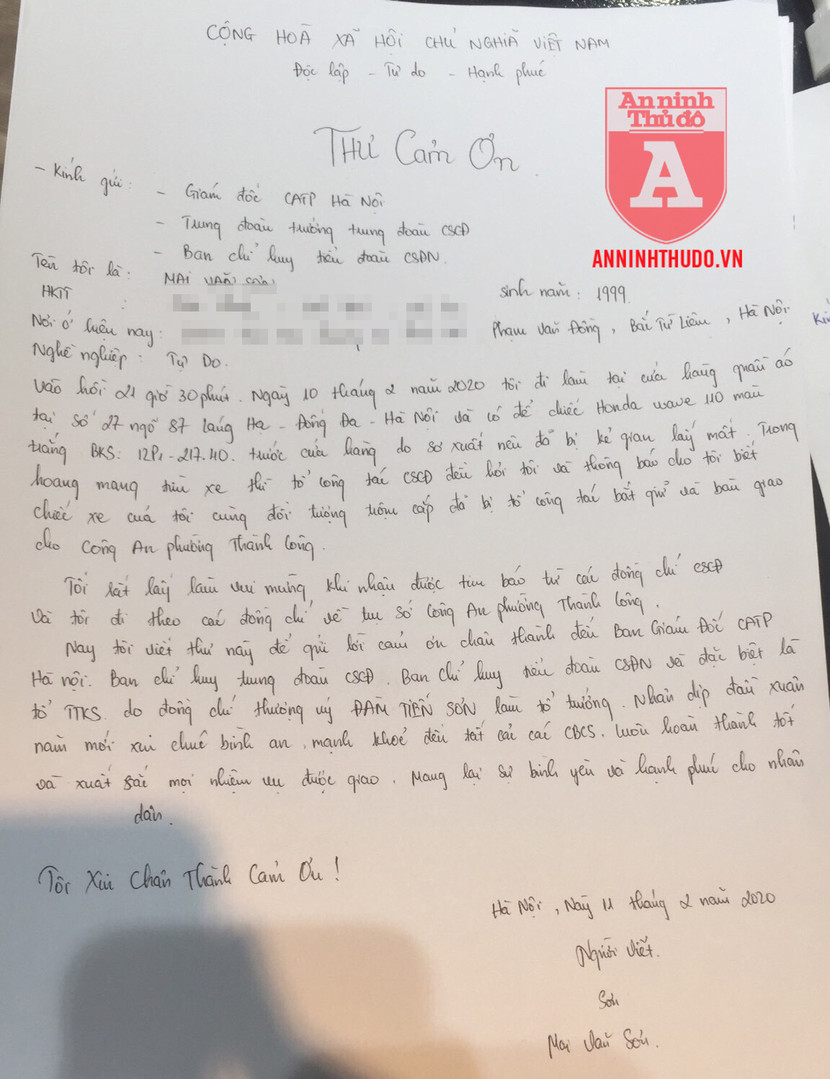 CỘNG HOÀ XÃ HỘI CHỦ NGHĨA VIỆT NAM
Độc lập - Tự do - Hạnh phúc
An ninh
Thủ đô
A
ANNINHTHUDO.VN
THƯ Cảm Ơn
- Kính gửi: - Giám đốc CATP Hà Nội
- Trung đoàn trưởng trung đoàn CSCĐ
- Ban chỉ huy tiểu đoàn CSĐN.
Tên tôi là: MAI VĂN sinh năm: 1999
HKTT :
Nơi ở hiện nay: Phạm Văn Đồng, Bắc Từ Liêm, Hà Nội
Nghề nghiệp: Tự Do.
Vào hồi 21 giờ 30 phút. Ngày 10 tháng 2 năm 2020 tôi đi làm tại cửa hàng quần áo
tại số 27 ngõ 87 Láng Hạ - Đống Đa - Hà Nội và có để chiếc Honda wave 110 màu
trắng BKS: 12P1-217.40. trước cửa hàng do sơ xuất nên đã bị kẻ gian lấy mất. Trong
hoang mang tìm xe thì tổ công tác CSCĐ đến hỏi tôi và thông báo cho tôi biết
chiếc xe của tôi cùng đối tượng trộm cắp đã bị tổ công tác bắt giữ và bàn giao
cho Công An phường Thành Công.
Tôi rất lấy làm vui mừng khi nhận được tin báo từ các đồng chí CSCĐ
và tôi đi theo các đồng chí về trụ sở Công An phường Thành Công.
Nay tôi viết thư này để gửi lời cảm ơn chân thành đến Ban Giám Đốc CATP
Hà nội. Ban chỉ huy trung đoàn CSCĐ. Ban chỉ huy tiểu đoàn CSĐN và đặc biệt là
tổ TTKS. do đồng chí thượng uý ĐÀM TIẾN SƠN làm tổ trưởng. Nhân dịp đầu xuân
năm mới xin chúc bình an, mạnh khoẻ đến tất cả các CBCS. luôn hoàn thành tốt
và xuất sắc mọi nhiệm vụ được giao. Mang lại sự bình yên và hạnh phúc cho nhân
dân.
Tôi Xin Chân Thành Cảm Ơn!
Hà Nội, Này 11 tháng 2 năm 2020
Người viết.
Sơn
Mai Văn Sơn.